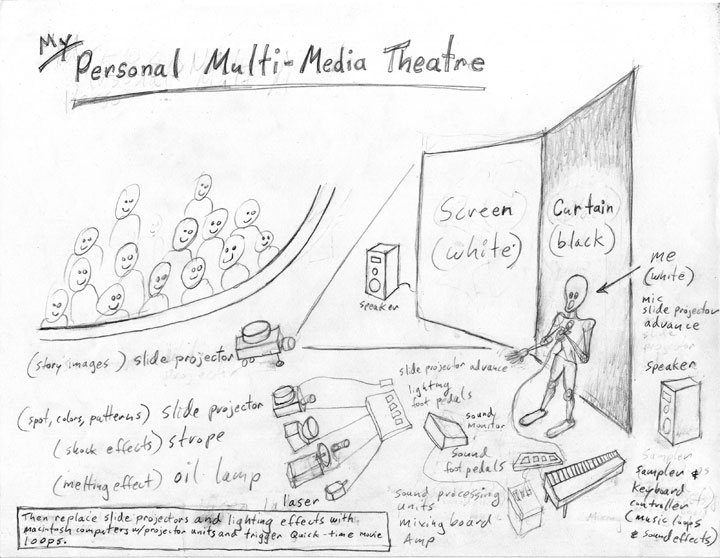 My
Personal Multi-Media Theatre
Screen
(white)
Curtain
(black)
me
(white)
mic
slide projector
advance
speaker
speaker
(story images) slide projector
slide projector advance
lighting
foot pedals
(spot, colors, patterns) slide projector
(shock effects) strope
(melting effect) oil lamp
laser
sound
monitor
sound
foot pedals
sound processing
units
mixing board
Amp
Sampler
sampler &
keyboard
controller
(music loops
& sound effects)
Then replace slide projectors and lighting effects with
macintosh computers w/projector units and trigger Quick-time movie
loops.